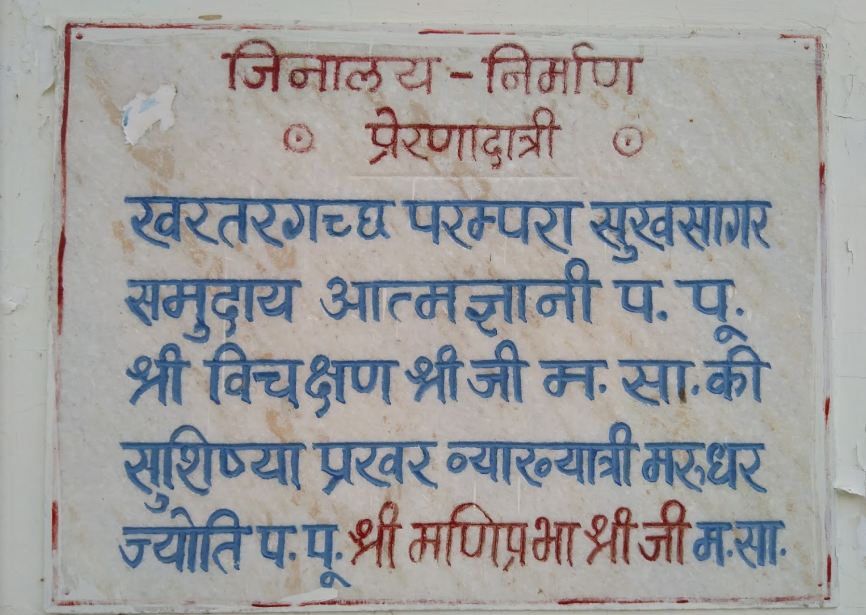 जिनालय - निर्माण
प्रेरणादात्री
खरतरगच्छ परम्परा सुखसागर
समुदाय आत्मज्ञानी प. पू.
श्री विचक्षण श्री जी म. सा. की
सुशिष्या प्रखर व्याख्यात्री मरुधर
ज्योति प. पू. श्री मणिप्रभा श्री जी म. सा.